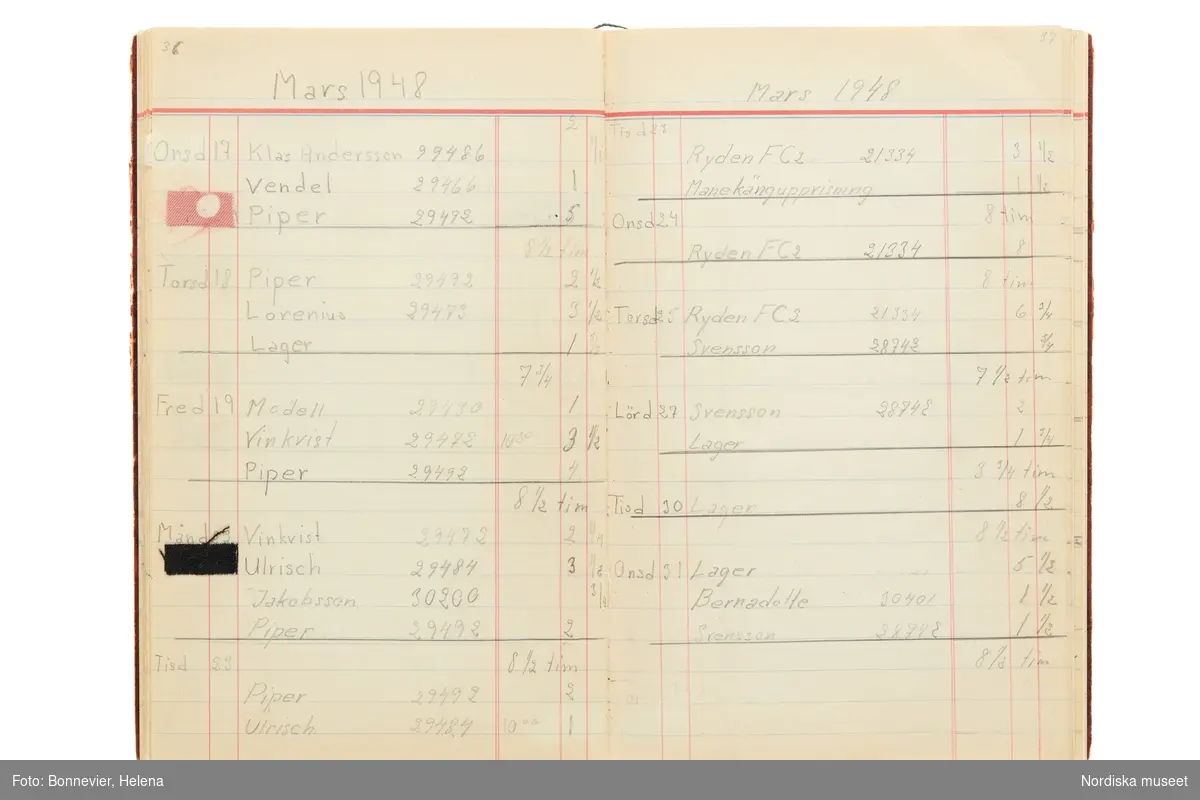 36
Mars 1948
2
Onsd 17 Klas Andersson 29486
Vendel 29466 1
Piper 29492 5
8 1/2 tim
Torsd 18 Piper 29492 2 1/2
Lorenius 29473 3 1/2
Lager 1
7 3/4
Fred 19 Modell 29430 1
Vinkvist 29472 10 30 3 1/2
Piper 29492 4
8 1/2 tim
Månd Vinkvist 29472 2
Ulrisch 29484 3 1/2
Jakobsson 30200 3/4
Piper 29492 2
Tisd 23 8 1/2 tim
Piper 29492 2
Ulrisch 29484 10 00 1
37
Mars 1948
Tisd 23
Ryden FC2 21334 3 1/2
Manekängupprisning 1 1/2
Onsd 24 8 tim
Ryden FC2 21334 8
8 tim
Torsd 25 Ryden FC2 21334 6 3/4
Svensson 28742 3/4
7 1/2 tim
Lörd 27 Svensson 28742 2
Lager 1 3/4
3 3/4 tim
Tisd 30 Lager 8 1/2
8 1/2 tim
Onsd 31 Lager 5 1/2
Bernadotte 30401 1 1/2
Svensson 28742 1 1/2
8 1/2 tim
Foto: Bonnevier, Helena
Nordiska museet